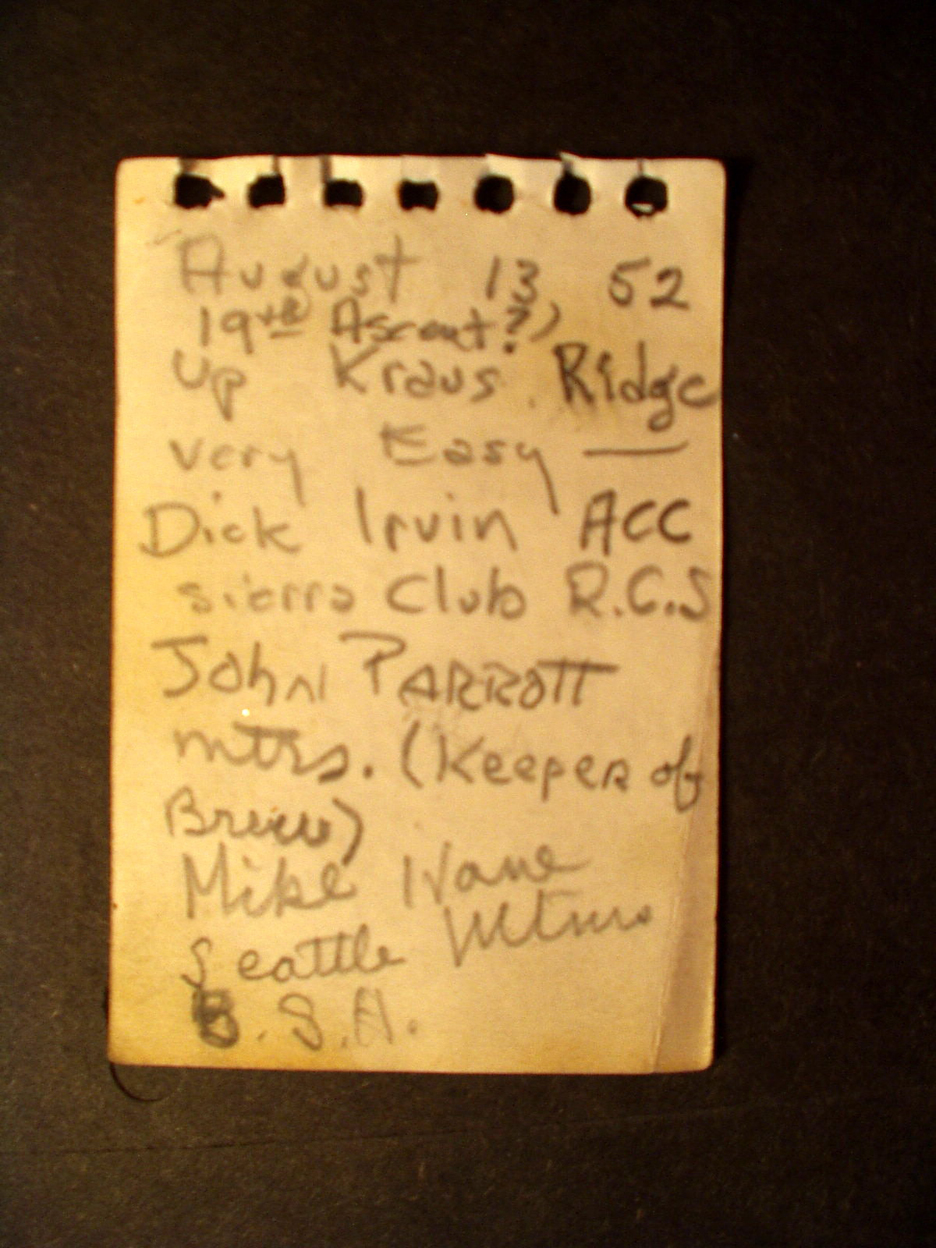 August 13 52
19th Ascent?)
Up Kraus Ridge
very Easy —
Dick Irvin ACC
sierra Club R.C.S
John PARROTT
mtrs. (Keeper of
Mike
Seattle Mtnrs
B.S.A.